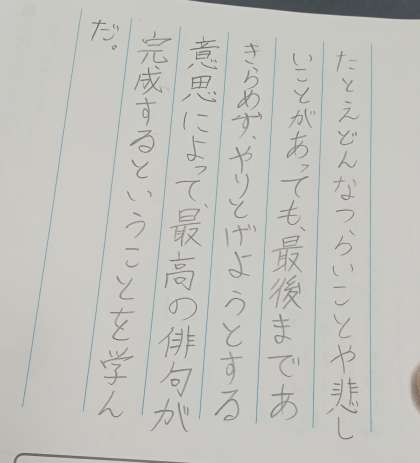 たとえどんなつらいことや悲し
いことがあっても、最後まであ
きらめず、やりとげようとする
意思によって、最高の俳句が
完成するということを学ん
だ。